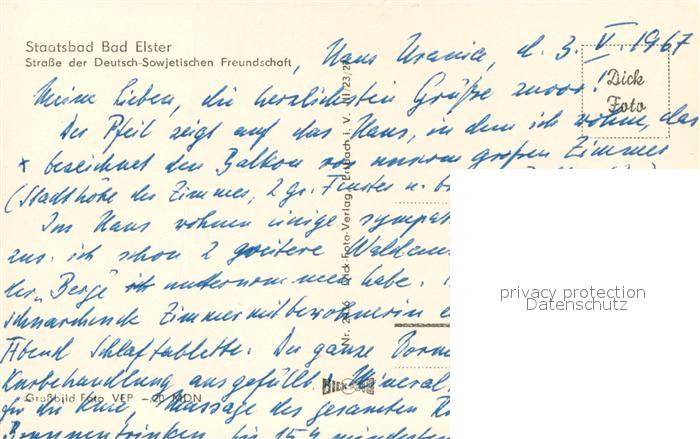 Staatsbad Bad Elster
Straße der Deutsch-Sowjetischen Freundschaft
, Haus Urania, d. 3. V. 1967
Meine Lieben, die herzlichsten Grüße zuvor!
Dick
Foto
Der Pfeil zeigt auf das Haus, in dem ich wohne, das
x bezeichnet den Balkon vor unserem großen Zimmer
(Stadthöhe des Zimmer, 2 gr. Fenster u.
Im Haus wohnen einige sympat
aus. ich schon 2 weitere
der „Berge" unternommen habe.
schnarchende Zimmermitbewohnerin e
Abend Schlaftablette. Der ganze Vorm
Kurbehandlung ausgefüllt. Mineral
Großbild Foto VEP -20 MDN
Massage des gesamten
Brunnentrinken bis
Nr. Dick-Foto-Verlag Erlbach i. V. III/23/27
privacy protection
Datenschutz